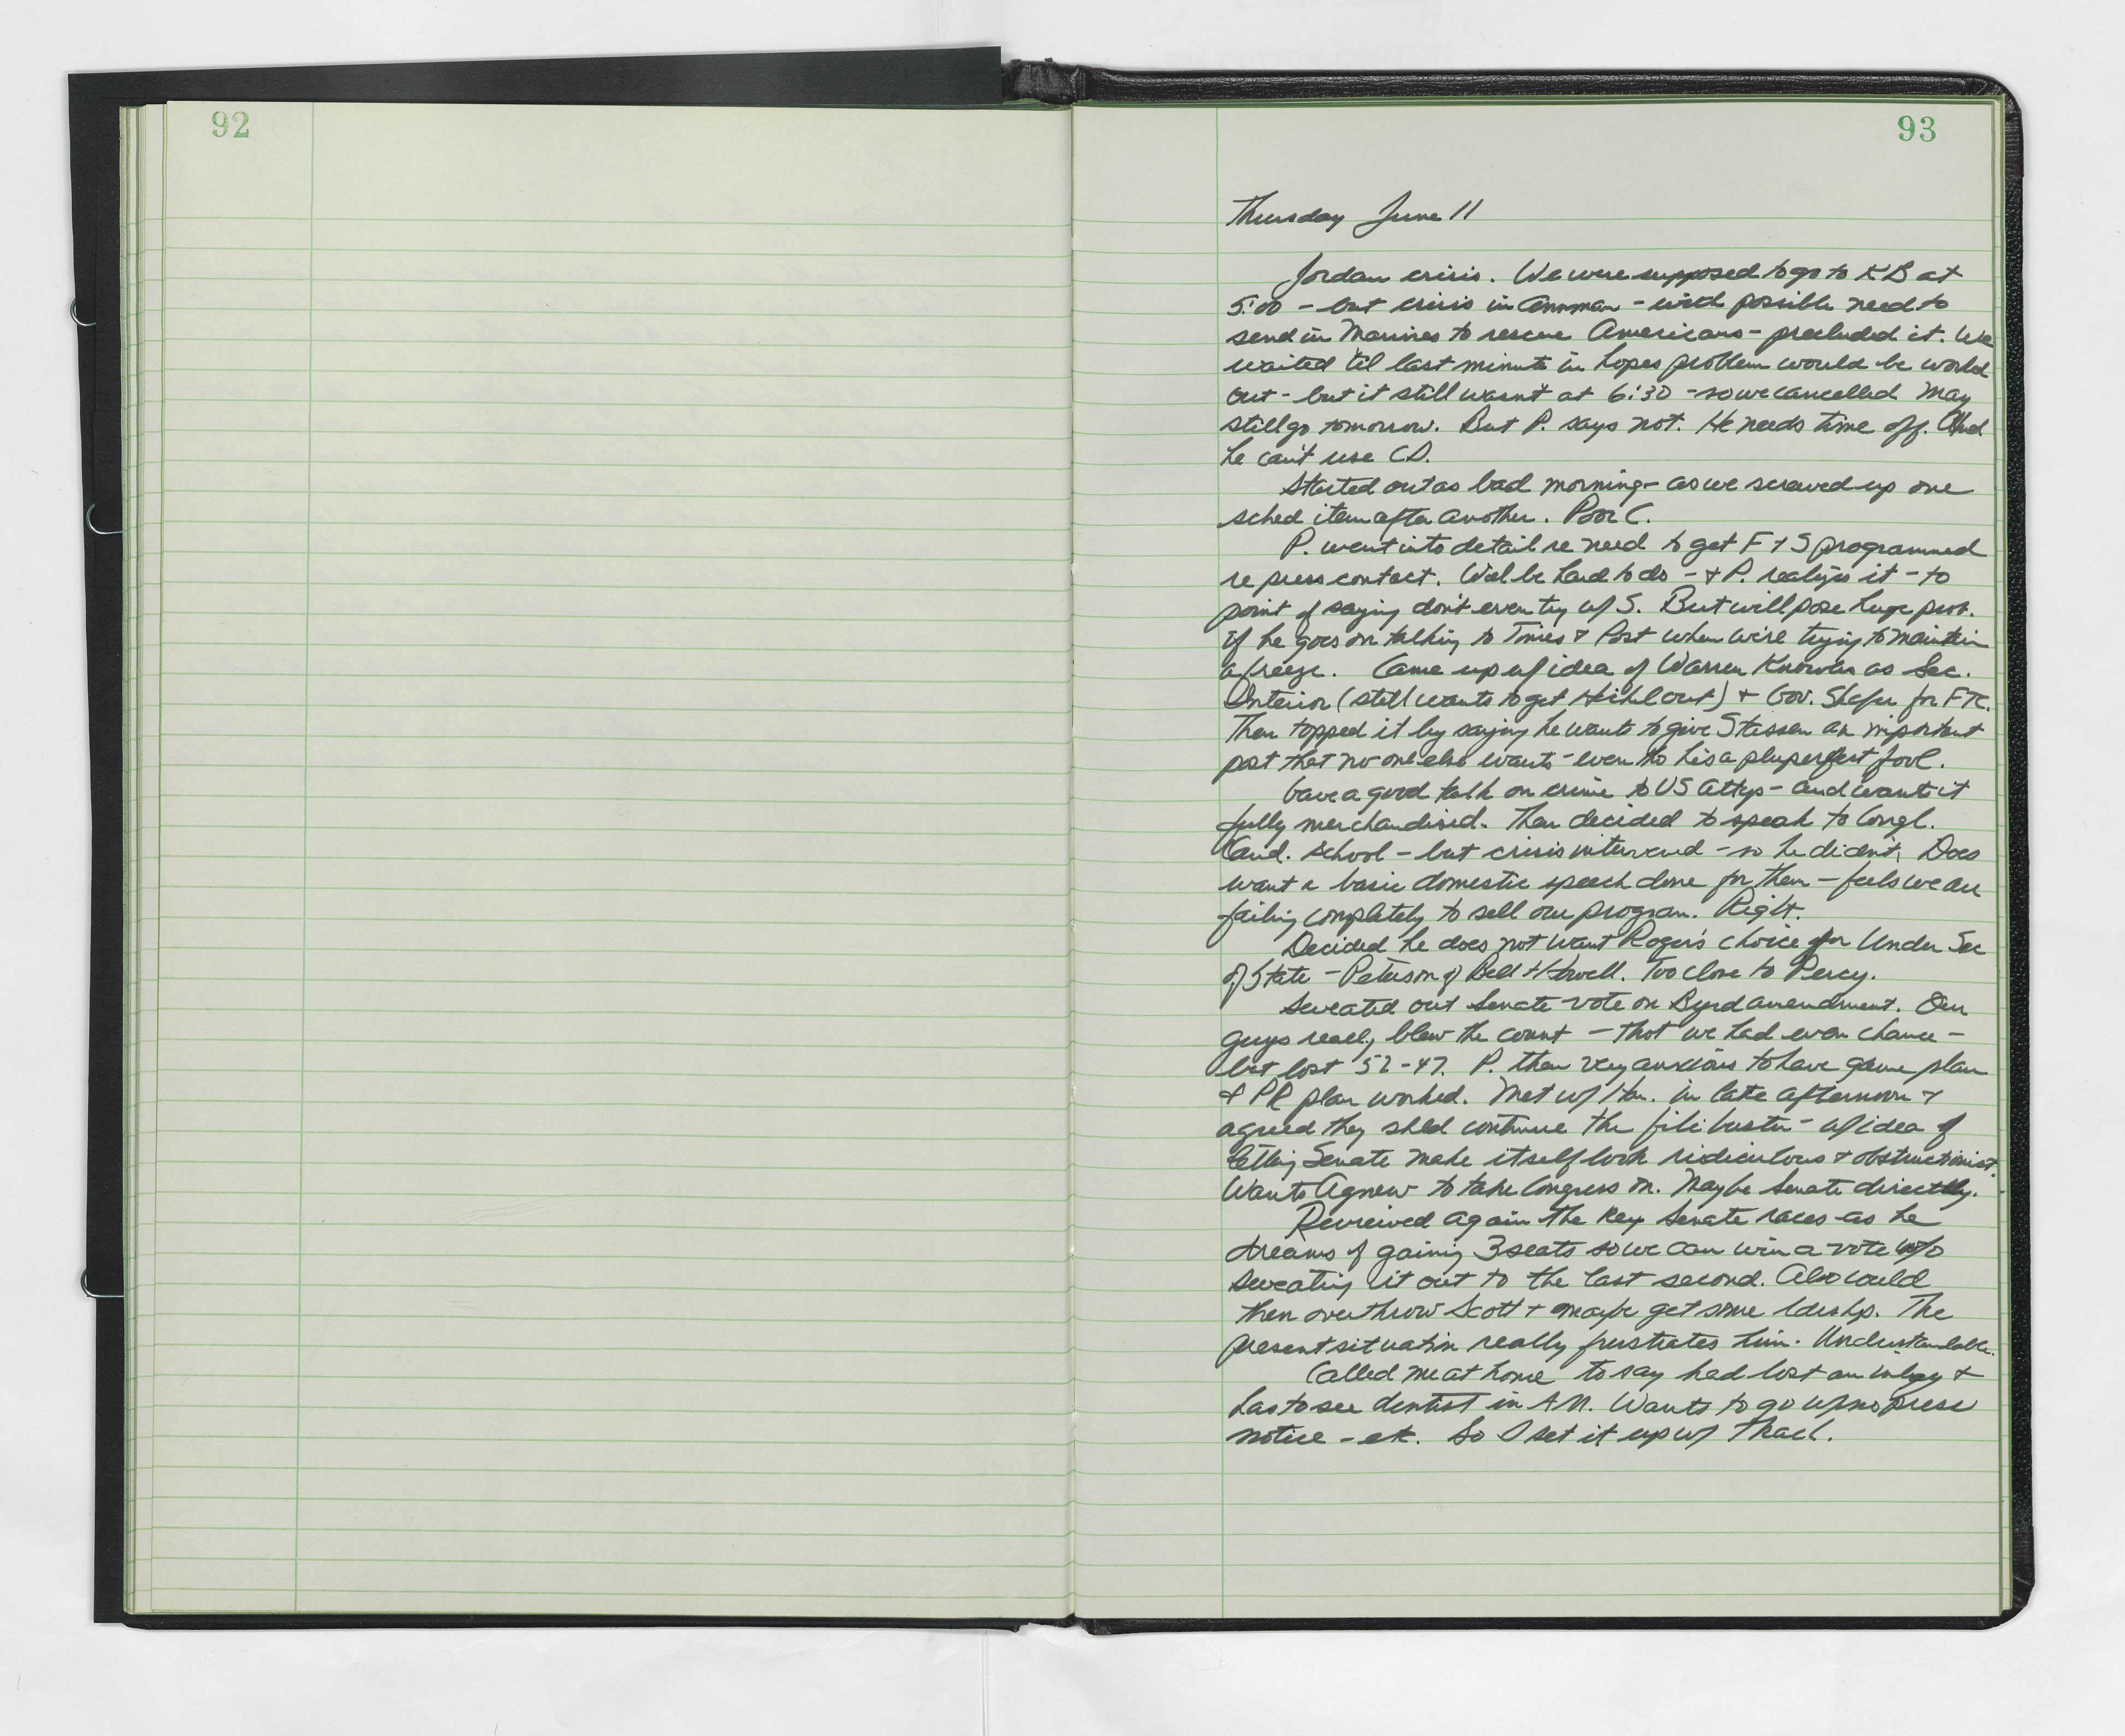 92
93
Thursday June 11
Jordan crisis. We were supposed to go to KB at
5:00 - but crisis in Amman - with possible need to
send in Marines to rescue Americans - precluded it. We
waited 'til last minute in hopes problem would be worked
out - but it still wasn't at 6:30 - so we cancelled May
still go tomorrow. But P. says not. He needs time off. And
he can't use CD.
Started out as bad morning - as we screwed up one
sched item after another. Poor C.
P. went into detail re need to get F & S programmed
re press contact. Will be hard to do - & P. realizes it - to
point of saying don't even try w/ S. But will pose huge prob.
if he goes on talking to Times & Post when we're trying to maintain
a freeze. Came up w/ idea of Warren Knowles as Sec.
Interior (still wants to get Hickel out) & Gov. Shafer for FTC.
Then topped it by saying he wants to give Stassen an important
post that no one else wants - even tho he's a pluperfect fool.
Gave a good talk on crime to US Attys - and wants it
fully merchandised. Then decided to speak to Congl.
Cand. school - but crisis intervened - so he didn't. Does
want a basic domestic speech done for them - feels we are
failing completely to sell our program. Right.
Decided he does not want Roger's choice for Under Sec
of State - Peterson of Bell & Howell. Too close to Percy.
Sweated out Senate vote on Byrd amendment. Our
guys really blew the count - thot we had even chance -
but lost 52-47. P. then very anxious to have game plan
& PR plan worked. Met w/ Har. in late afternoon &
agreed they shld continue the filibuster - w/ idea of
letting Senate make itself look ridiculous & obstructionist.
Wants Agnew to take Congress on. Maybe Senate directly.
Reviewed again the key Senate races as he
dreams of gaining 3 seats so we can win a vote w/o
sweating it out to the last second. Also could
then overthrow Scott & maybe get some ldrshp. The
present situation really frustrates him. Understandable.
Called me at home to say had lost an inlay &
has to see dentist in A.M. Wants to go w/ no press
notice - etc. So I set it up w/ Thach.